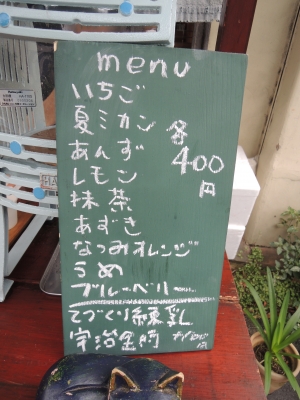 menu
いちご
夏ミカン
各
400
円
あんず
レモン
抹茶
あずき
なつみオレンジ
うめ
ブルーベリー
てづくり練乳
宇治金時